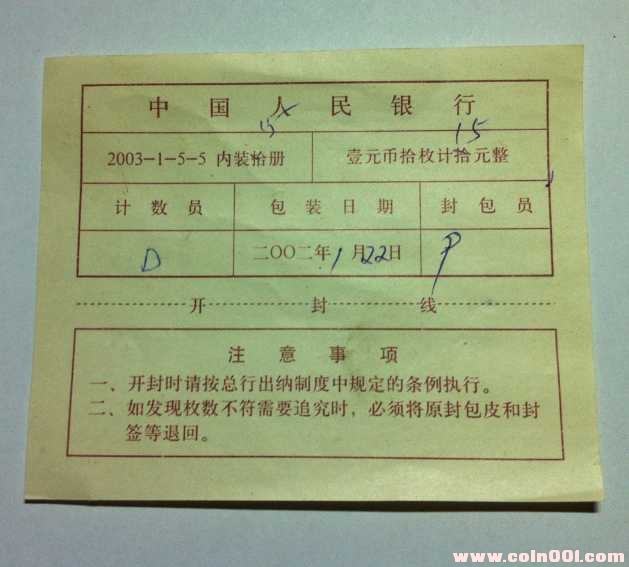 中国人民银行
15
15
2003-1-5-5 内装拾册 壹元币拾枚计拾元整
计数员 包装日期 封包员
D 二〇〇二年1月22日 P
开封线
注意事项
一、开封时请按总行出纳制度中规定的条例执行。
二、如发现枚数不符需要追究时，必须将原封包皮和封
签等退回。
www.coin001.com